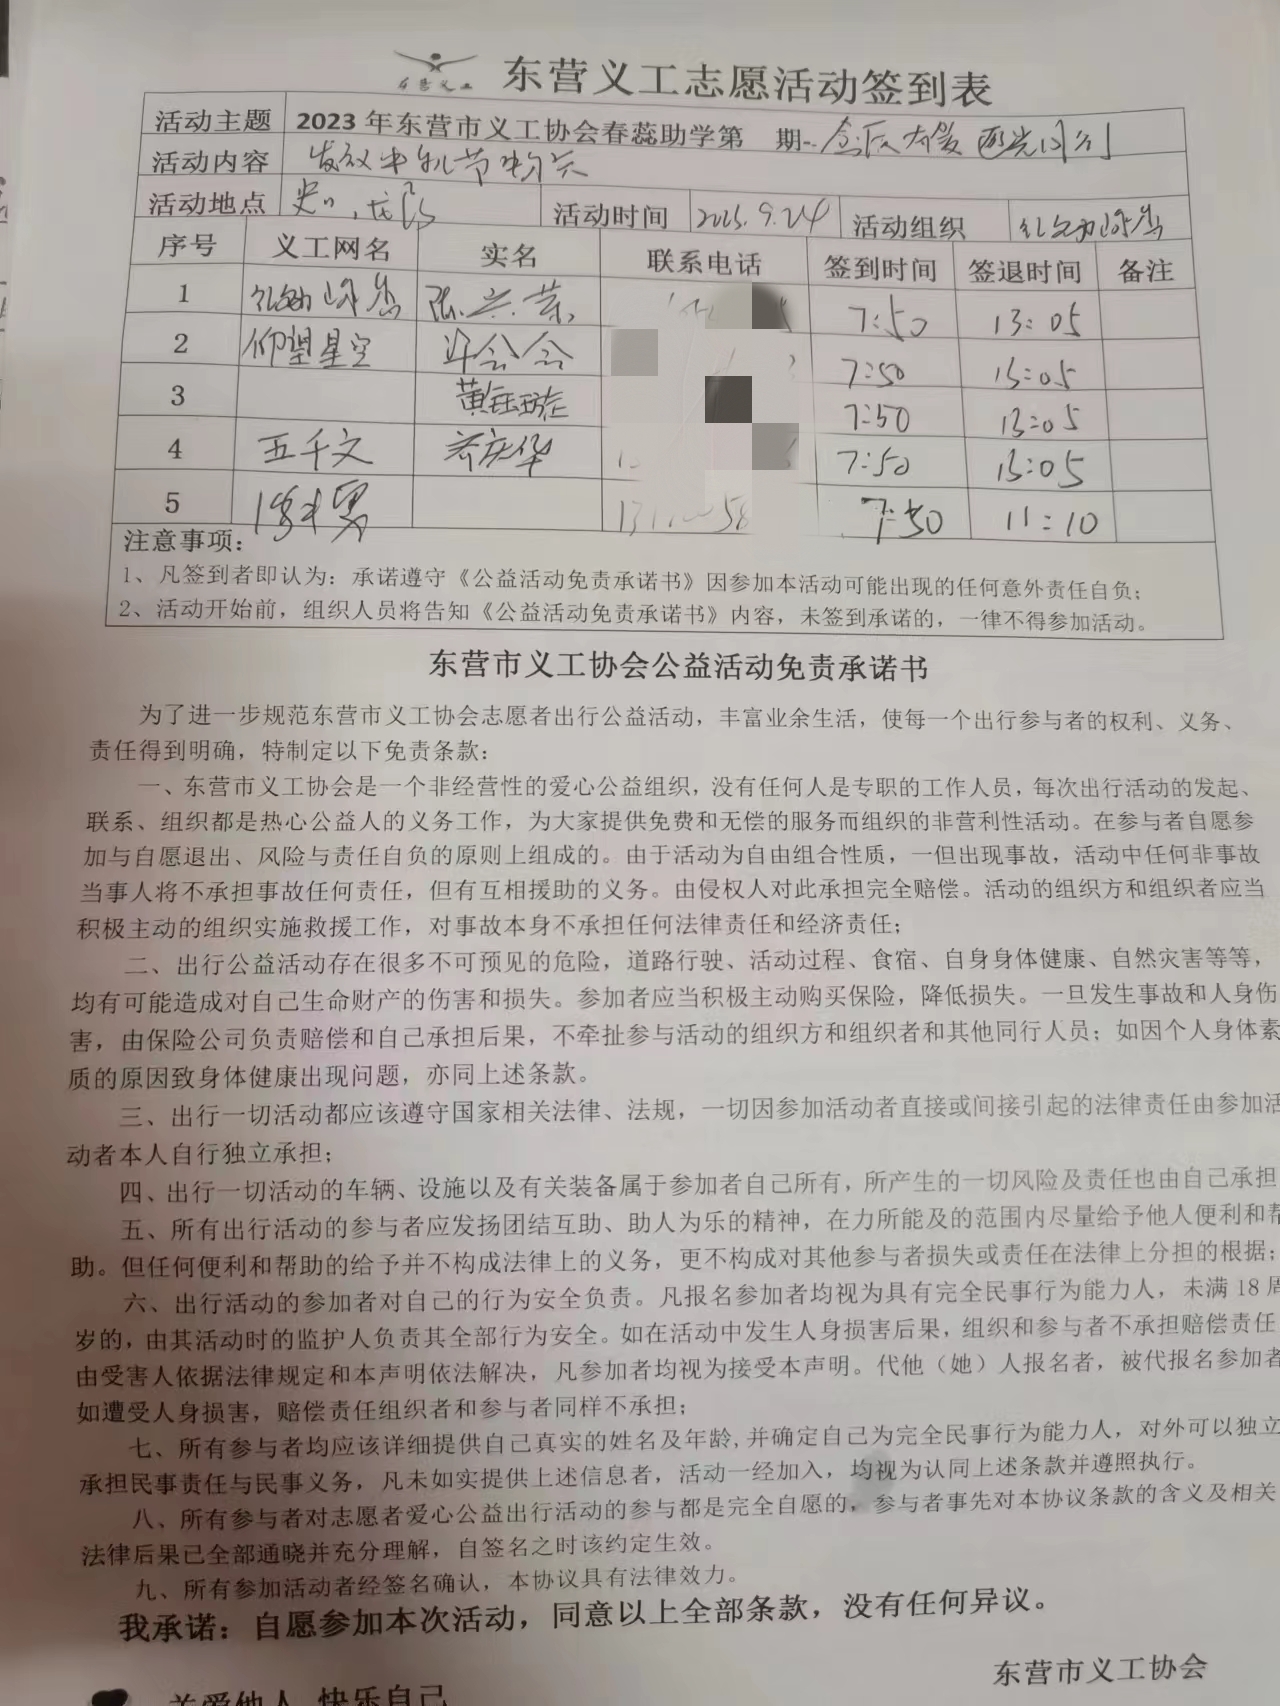 东营义工
东营义工志愿活动签到表
活动主题 2023年东营市义工协会春蕊助学第 期--
活动内容 发放中秋节物资
活动地点 活动时间 2023.9.24 活动组织
序号 义工网名 实名 联系电话 签到时间 签退时间 备注
1 7:50 13:05
2 仰望星空 7:50 13:05
3 7:50 13:05
4 五千文 乔庆华 7:50 13:05
5 7:50 11:10
注意事项：
1、凡签到者即认为：承诺遵守《公益活动免责承诺书》因参加本活动可能出现的任何意外责任自负；
2、活动开始前，组织人员将告知《公益活动免责承诺书》内容，未签到承诺的，一律不得参加活动。
东营市义工协会公益活动免责承诺书
为了进一步规范东营市义工协会志愿者出行公益活动，丰富业余生活，使每一个出行参与者的权利、义务、
责任得到明确，特制定以下免责条款：
一、东营市义工协会是一个非经营性的爱心公益组织，没有任何人是专职的工作人员，每次出行活动的发起、
联系、组织都是热心公益人的义务工作，为大家提供免费和无偿的服务而组织的非营利性活动。在参与者自愿参
加与自愿退出、风险与责任自负的原则上组成的。由于活动为自由组合性质，一但出现事故，活动中任何非事故
当事人将不承担事故任何责任，但有互相援助的义务。由侵权人对此承担完全赔偿。活动的组织方和组织者应当
积极主动的组织实施救援工作，对事故本身不承担任何法律责任和经济责任；
二、出行公益活动存在很多不可预见的危险，道路行驶、活动过程、食宿、自身身体健康、自然灾害等等，
均有可能造成对自己生命财产的伤害和损失。参加者应当积极主动购买保险，降低损失。一旦发生事故和人身伤
害，由保险公司负责赔偿和自己承担后果，不牵扯参与活动的组织方和组织者和其他同行人员；如因个人身体素
质的原因致身体健康出现问题，亦同上述条款。
三、出行一切活动都应该遵守国家相关法律、法规，一切因参加活动者直接或间接引起的法律责任由参加活
动者本人自行独立承担；
四、出行一切活动的车辆、设施以及有关装备属于参加者自己所有，所产生的一切风险及责任也由自己承担
五、所有出行活动的参与者应发扬团结互助、助人为乐的精神，在力所能及的范围内尽量给予他人便利和帮
助。但任何便利和帮助的给予并不构成法律上的义务，更不构成对其他参与者损失或责任在法律上分担的根据；
六、出行活动的参加者对自己的行为安全负责。凡报名参加者均视为具有完全民事行为能力人，未满18周
岁的，由其活动时的监护人负责其全部行为安全。如在活动中发生人身损害后果，组织和参与者不承担赔偿责任
由受害人依据法律规定和本声明依法解决，凡参加者均视为接受本声明。代他（她）人报名者，被代报名参加者
如遭受人身损害，赔偿责任组织者和参与者同样不承担；
七、所有参与者均应该详细提供自己真实的姓名及年龄,并确定自己为完全民事行为能力人，对外可以独立
承担民事责任与民事义务，凡未如实提供上述信息者，活动一经加入，均视为认同上述条款并遵照执行。
八、所有参与者对志愿者爱心公益出行活动的参与都是完全自愿的，参与者事先对本协议条款的含义及相关
法律后果已全部通晓并充分理解，自签名之时该约定生效。
九、所有参加活动者经签名确认，本协议具有法律效力。
我承诺：自愿参加本次活动，同意以上全部条款，没有任何异议。
东营市义工协会
关爱他人 快乐自己